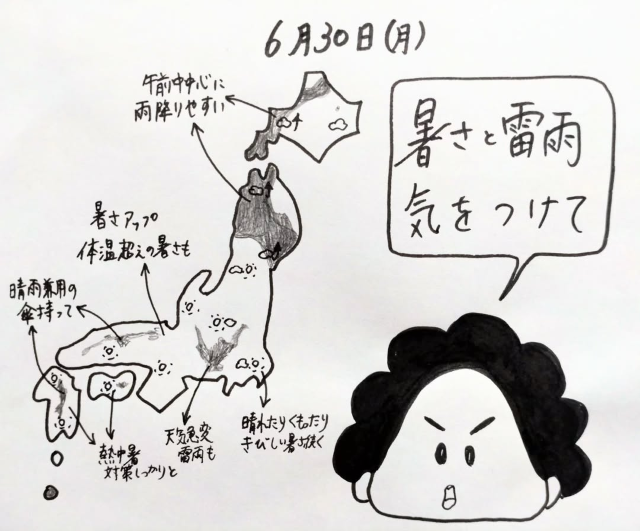 6月30日(月)
午前中中心に
雨降りやすい
暑さと雷雨
気をつけて
暑さアップ
体温超えの暑さも
晴雨兼用の
傘持って
熱中暑
対策しっかりと
天気急変
雷雨も
晴れたりくもったり
きびしい暑さ続く